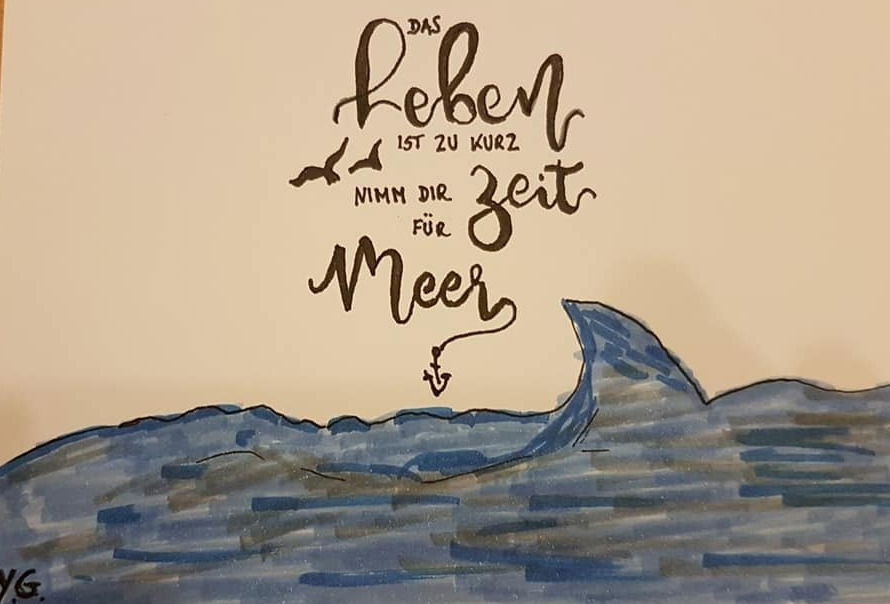 DAS
Leben
IST ZU KURZ
NIMM DIR Zeit
FÜR
Meer
Y.G.